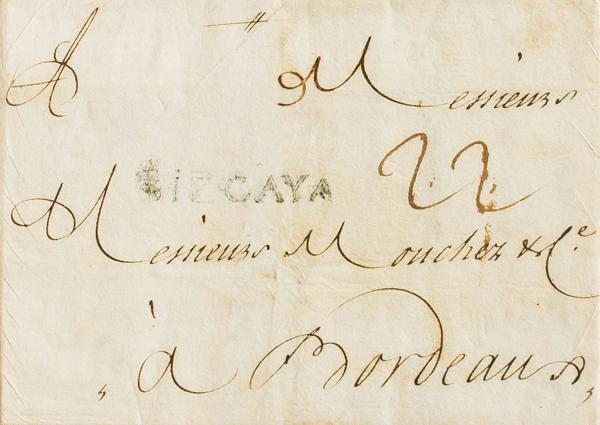 A Messieurs
VIZCAYA 22
Messieurs Mouchez & Ce
à Bordeaux